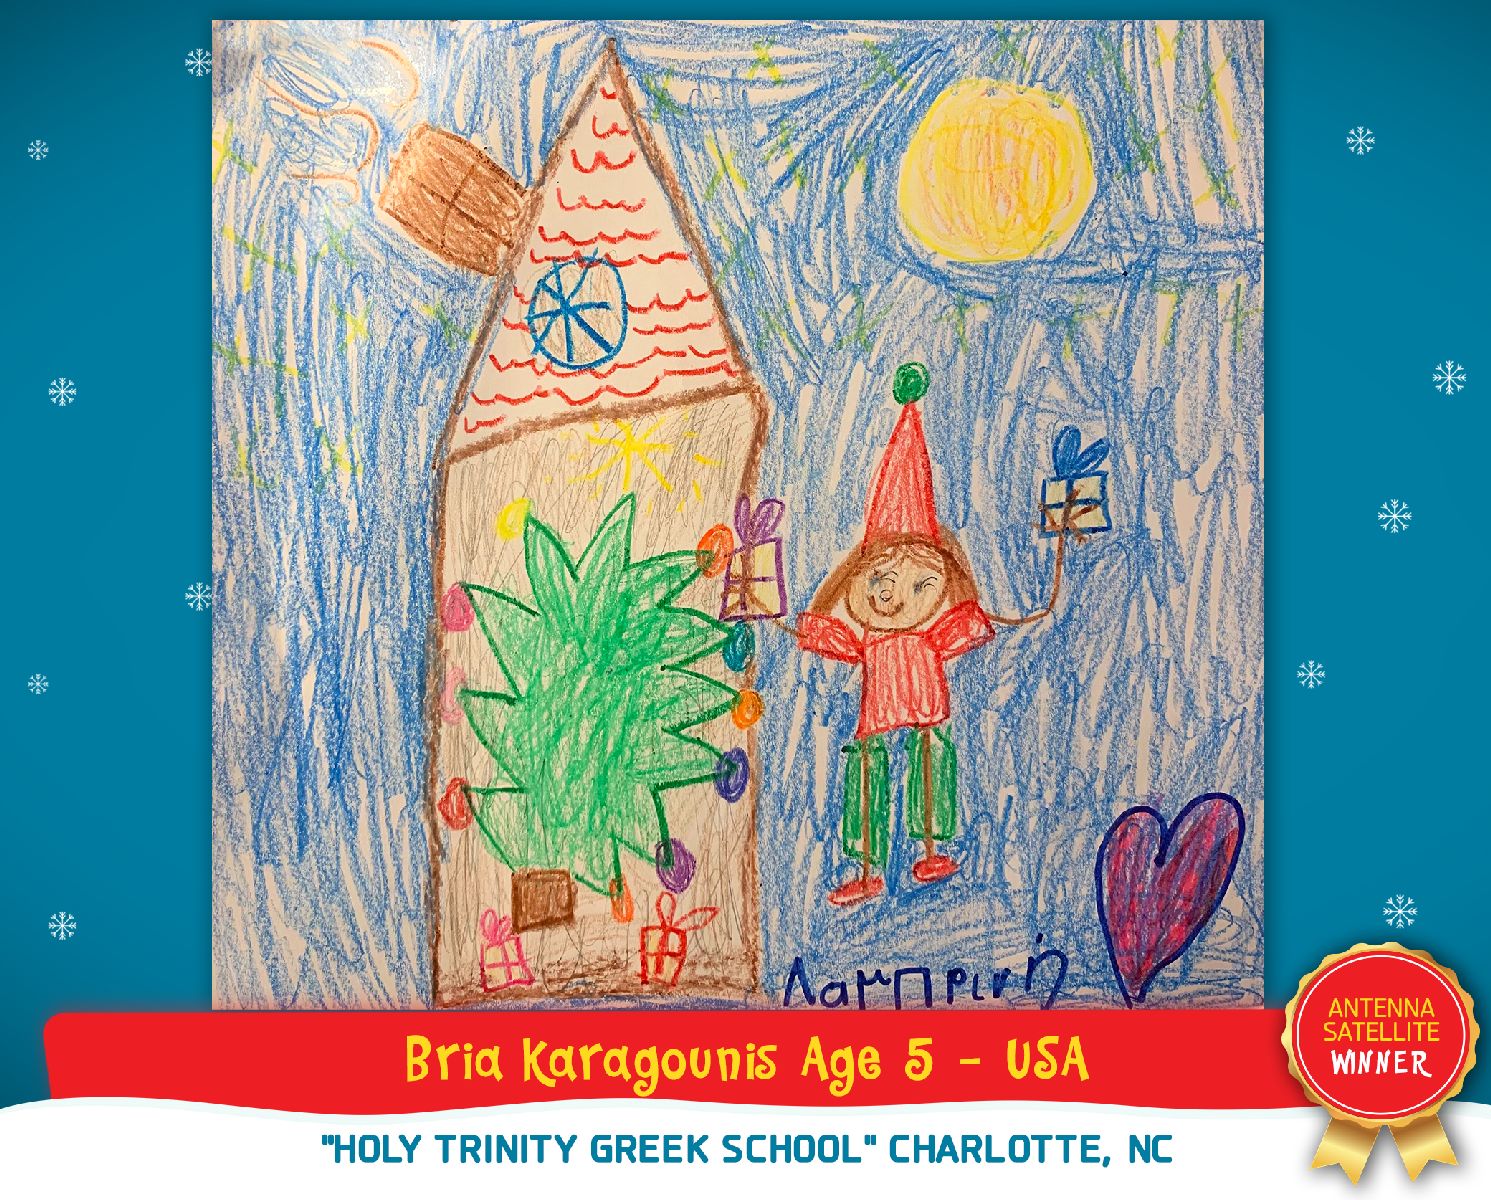 Λαμπρινή
Bria Karagounis Age 5 - USA
ANTENNA
SATELLITE
WINNER
"HOLY TRINITY GREEK SCHOOL" CHARLOTTE, NC